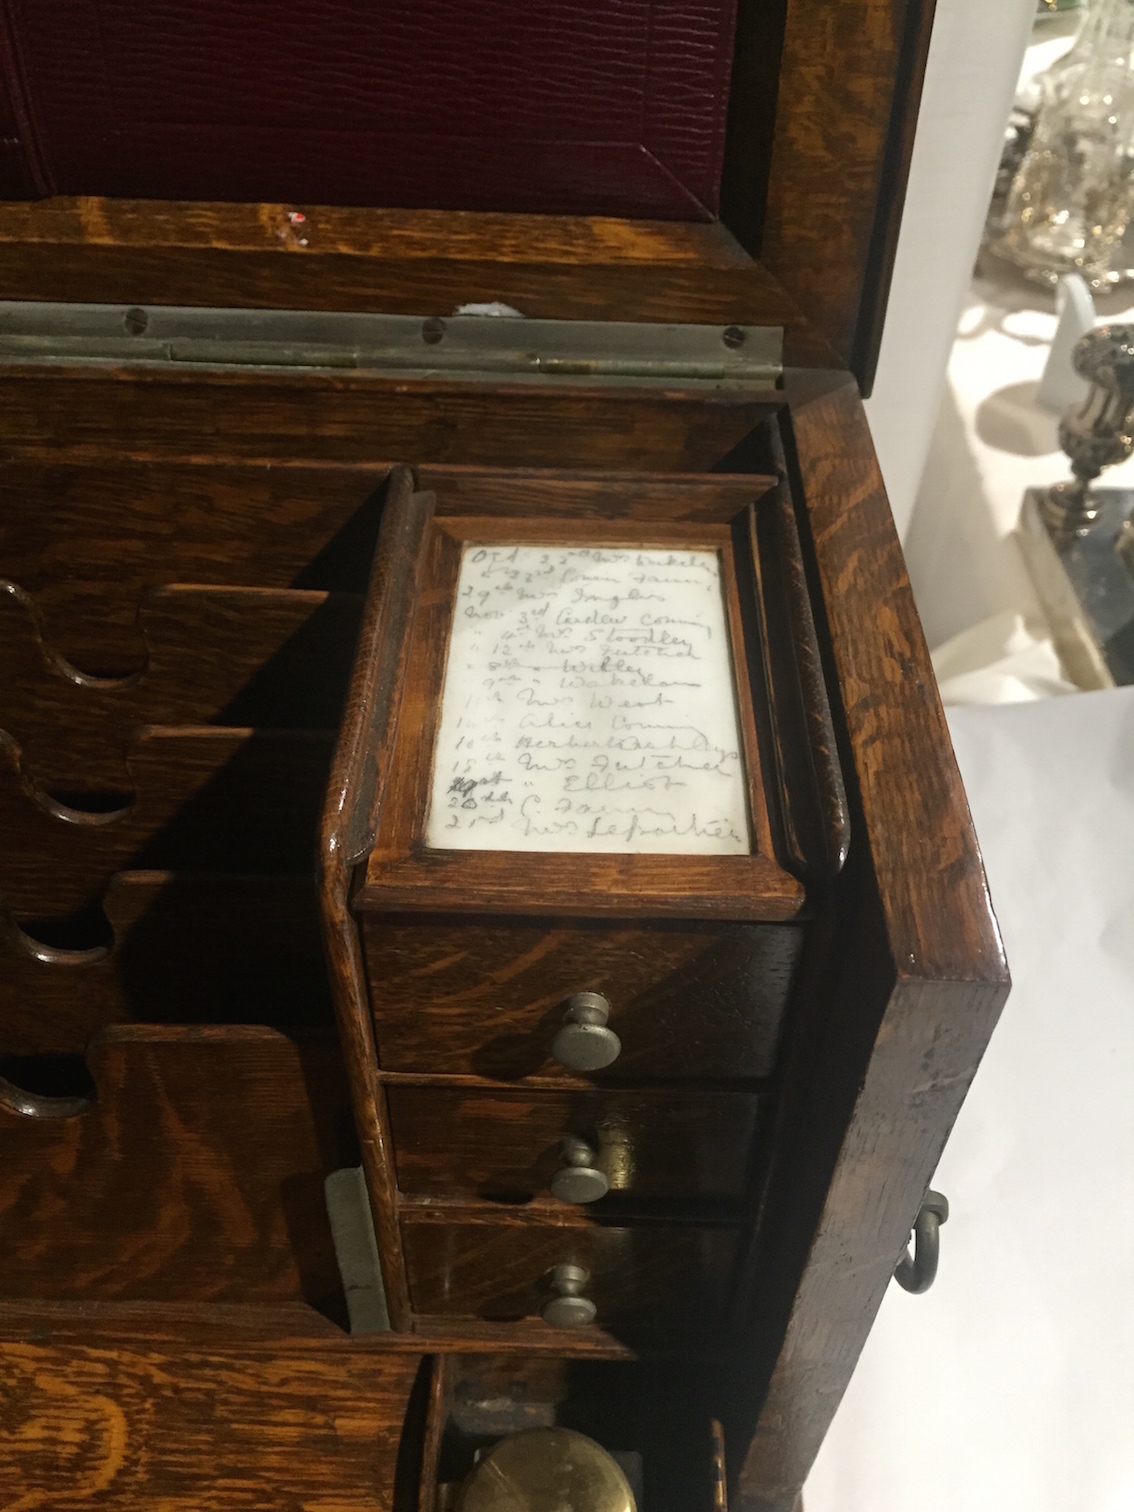 Oct 22nd Mrs Wakelam
" 23rd Cousin Fanny
29th Mrs Ingles
Nov 3rd Arden coming
" 4th Mrs Stoodley
" 12th Mrs Futcher
" 8th " Willey
9th " Wakelam
11th Mrs West
14th Alice Coming
10th Herbert
18th Mrs Futcher
" Elliot
20th C. Fanny
2nd Mrs